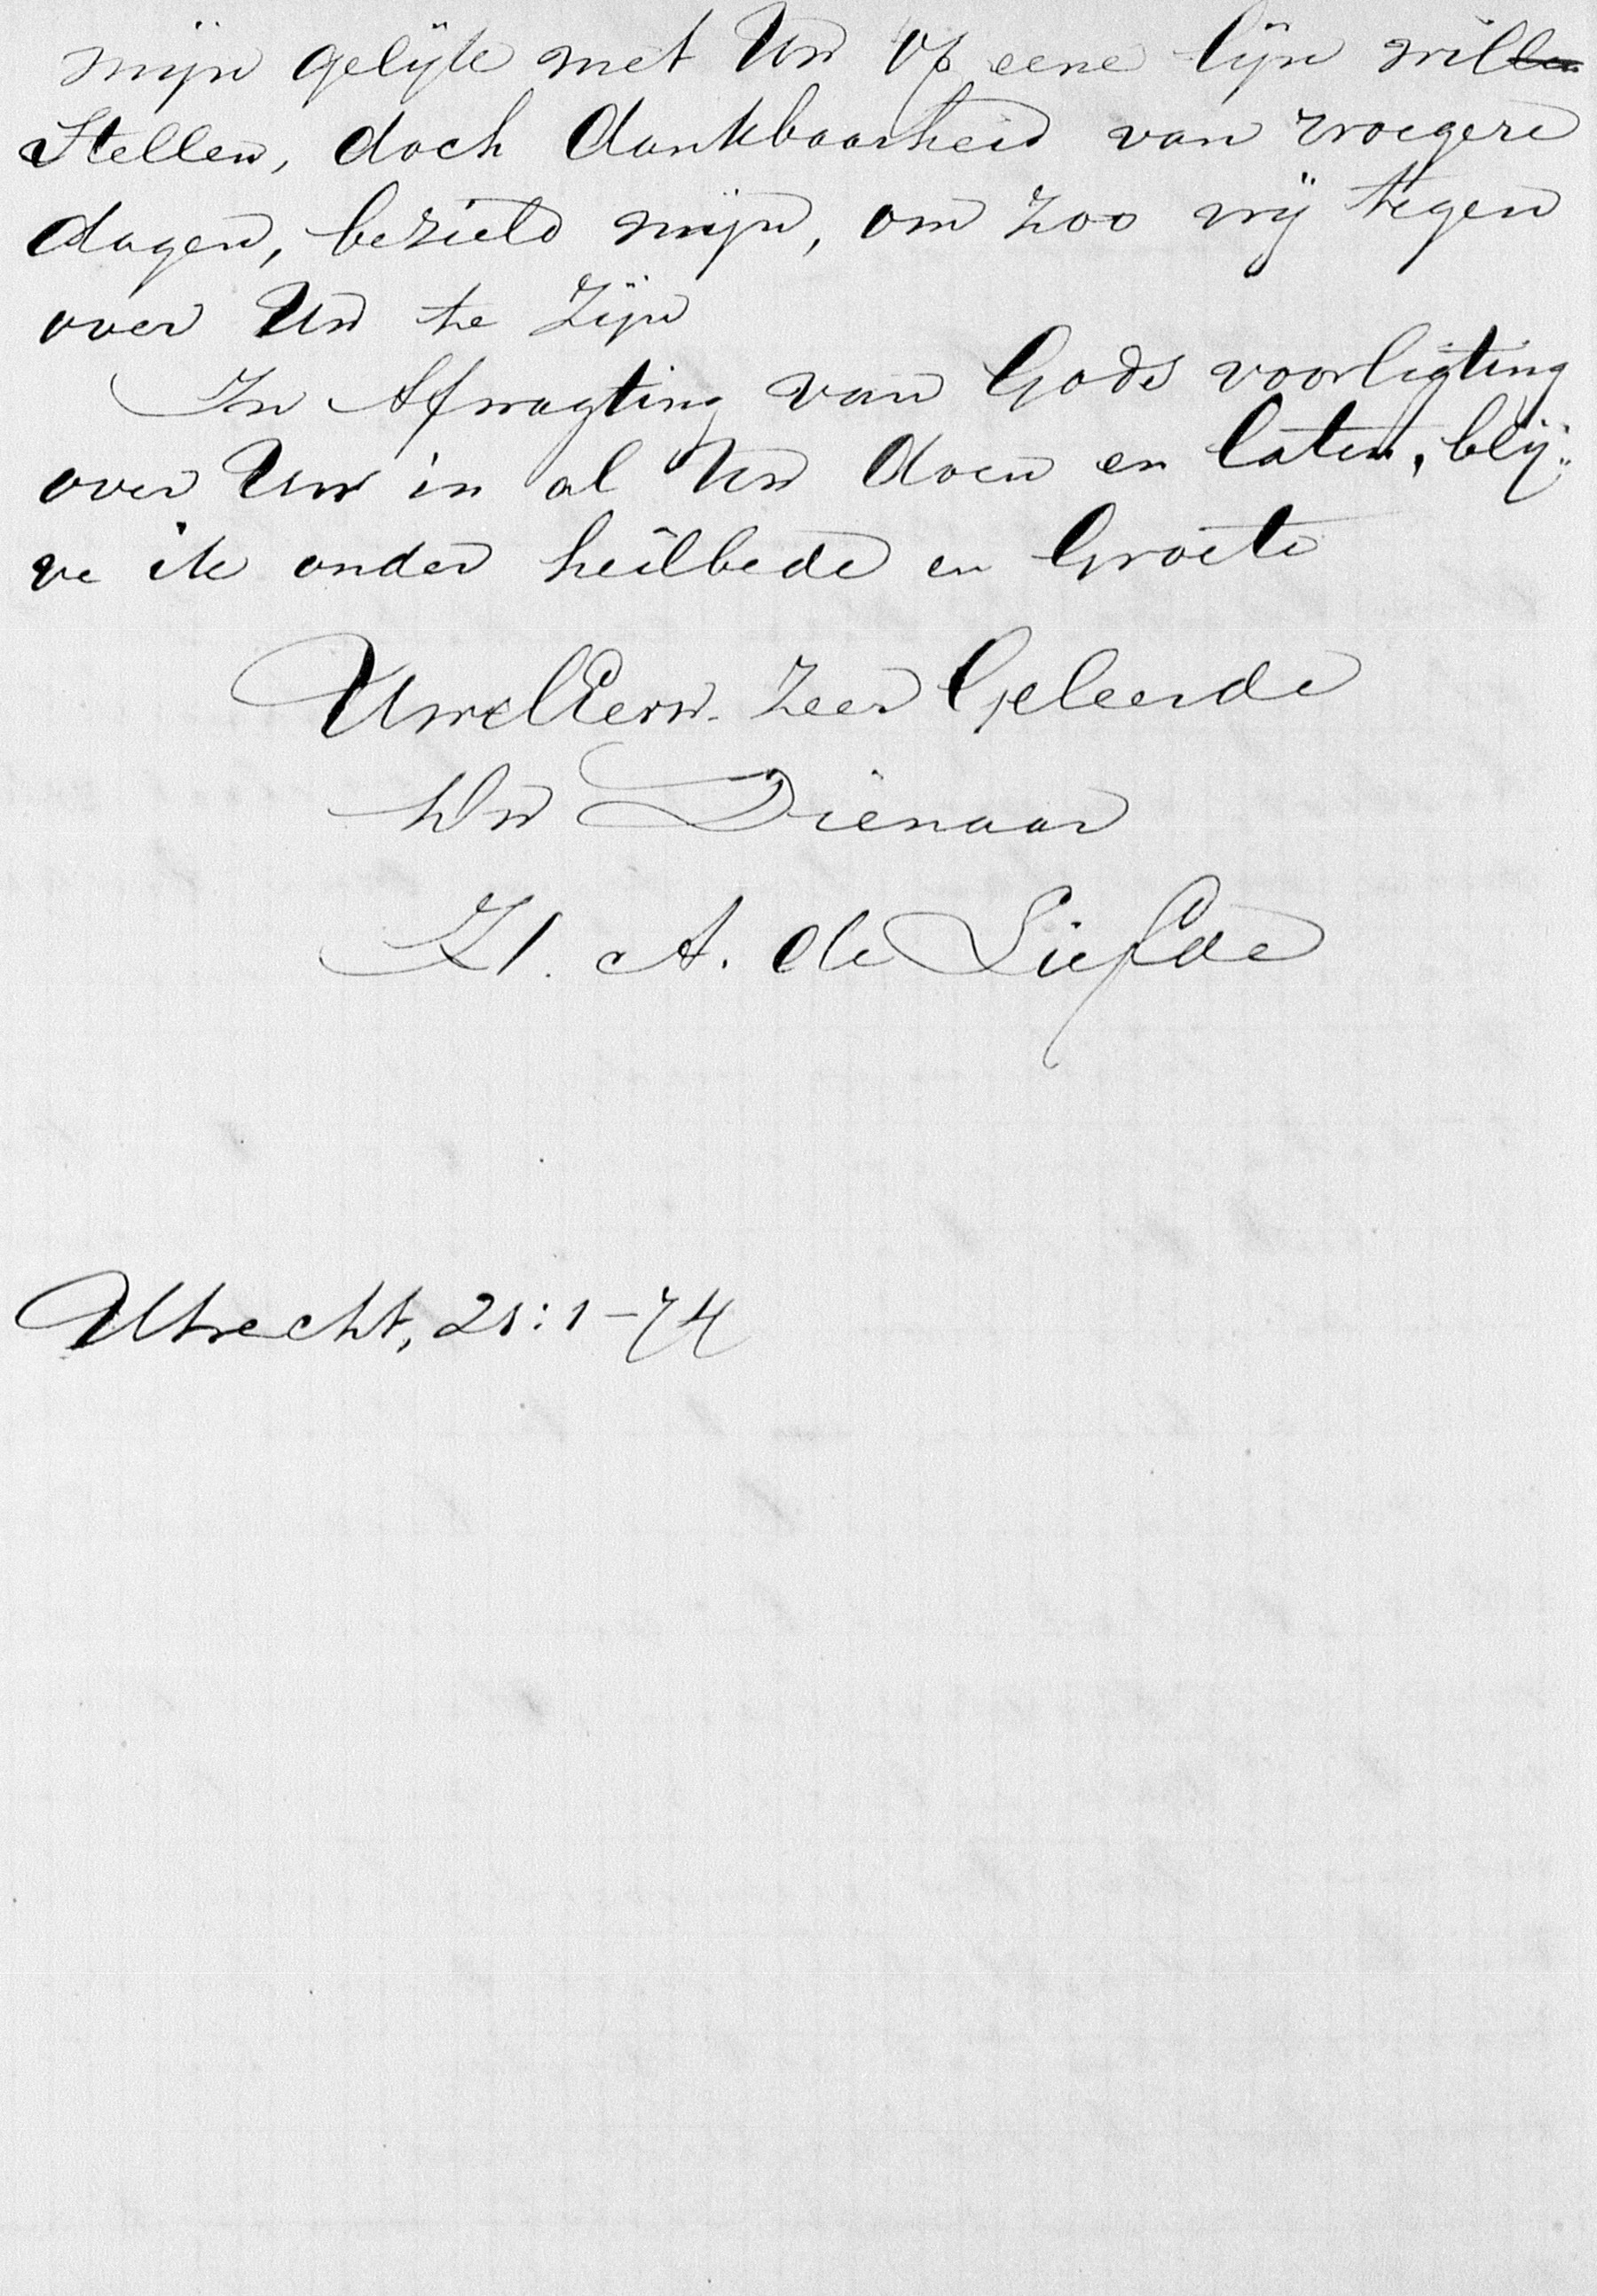 mijn gelijk met Uw op eene lijn will̶e̶n̶
Stellen, doch dankbaarheid van vroegere
dagen, bezield mijn, om zoo vrij tegen
over Uw te Zijn
In Afwagting van Gods voorligting
over Uw in al Uw doen en laten, blij„
ve ik onder heilbede en Groete
UwelEerw. Zeer Geleerde
Dw Dienaar
A. de Liefde
Utrecht, 21:1-74